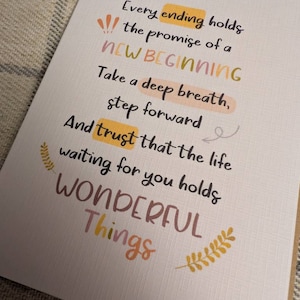 Every ending holds
the promise of a
NEW BEGINNING
Take a deep breath,
step forward
And trust that the life
waiting for you holds
WONDERFUL
Things